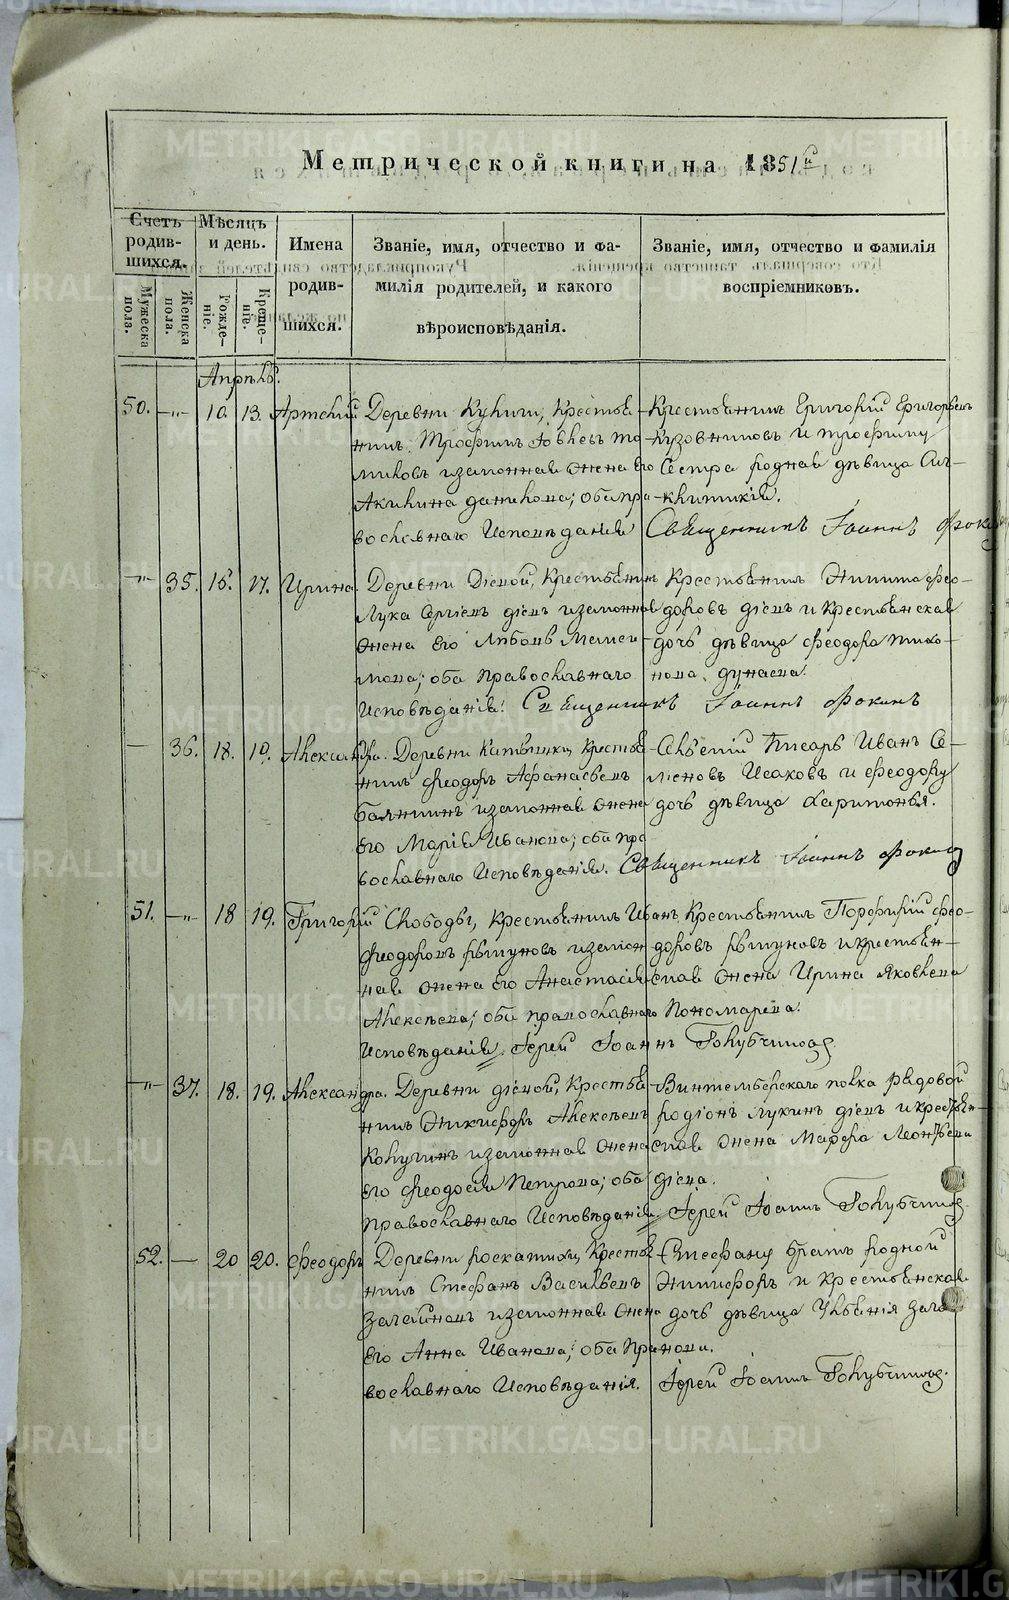 Метрической книги на 1851й
Счетъ родившихся.
Мужеска пола.
Женска пола.
Мѣсяцъ и день.
Рожденіе.
Крещеніе.
Имена родившихся.
Званіе, имя, отчество и фамилія родителей, и какого вѣроисповѣданія.
Званіе, имя, отчество и фамилія воспріемниковъ.
Апрѣль.
50. —„— 10. 13.
Деревни
и законная жена его
вославнаго Исповѣданія
Крестьянинъ Григорій Григорьевъ
Кузовниковъ и Трофиму
Сестра родная дѣвица
Священникъ Іоаннъ Фокинъ
—„— 35. 15. 17. Ирина.
Деревни Діевой, Крестьянинъ
Лука Сергіевъ Діевъ и законная
жена его Любовь
оба Православнаго
Исповѣданія.
Крестьянинъ Никита Ѳео-
доровъ Діевъ и Крестьянская
дочь дѣвица Ѳеодора Тихо-
нова Дунаева.
Священникъ Іоаннъ Фокинъ
— 36. 18. 19. Александра.
Деревни Катышки, Крестья-
нинъ Ѳеодоръ Афанасьевъ
и законная жена
его Марія Иванова; оба пра-
вославнаго Исповѣданія.
Сельскій Писарь Иванъ Се-
меновъ Исаковъ и Ѳеодору
дочь дѣвица Харитонья.
Священникъ Іоаннъ Фокинъ
51. —„— 18 19. Григорій
Слободы, Крестьянинъ Иванъ
Ѳеодоровъ Рѣтуновъ и закон-
ная жена его Анастасія
Алексѣева; оба православнаго
Исповѣданія.
Крестьянинъ Порфирій Ѳео-
доровъ Рѣтуновъ и крестьян-
ская жена Ирина Яковлева
Пономарева.
Іерей Іоаннъ Голубчиковъ
—„— 37. 18. 19. Александра.
Деревни Діевой, Крестья-
нинъ Никифоръ Алексѣевъ
и законная жена
его Ѳеодосія Петрова; оба
православнаго Исповѣданія
полка рядовой
Родіонъ Лукинъ Діевъ и крестьян-
ская жена Марфа Леонтьева
Діева.
Іерей Іоаннъ Голубчиковъ
52. — 20 20. Ѳеодоръ
Деревни Крестья-
нинъ Стефанъ Васильевъ
и законная жена
его Анна Иванова; оба Пра-
вославнаго Исповѣданія.
Стефану братъ родной
Никифоръ и крестьянская
дочь дѣвица
Іерей Іоаннъ Голубчиковъ.
METRIKI.GASO-URAL.RU